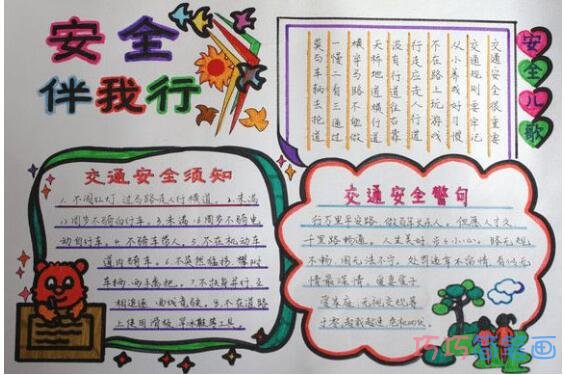 安全
伴我行
安全儿歌
交通安全很重要
交通规则要牢记
从小养成好习惯
不在路上玩游戏
行走应走人行道
没有行道往右靠
天桥地道横行道
横穿马路不能做
一慢二看三通过
莫与车辆去抢道
交通安全须知
1.不闯红灯,过马路走人行横道。2.未满
12周岁不骑自行车。3.未满16周岁不骑电
动自行车。4.不骑车带人。5.不在机动车
道内骑车。6.不突然猛拐,攀附
车辆,两手离把。7.不扶身并行,互
相追逐,曲线竞驶。8.不在道路
上使用滑板,旱冰鞋等工具。
交通安全警句
行万里平安路,做百年长乐人。但愿人长久
千里路畅通。人生美好 步步小心。路无规
不畅,国无法不宁。处罚违章不留情,看似无
情最深情。爱妻爱子
爱家庭,无视交规等
于零。超载超速 危机四伏
巧巧简笔画